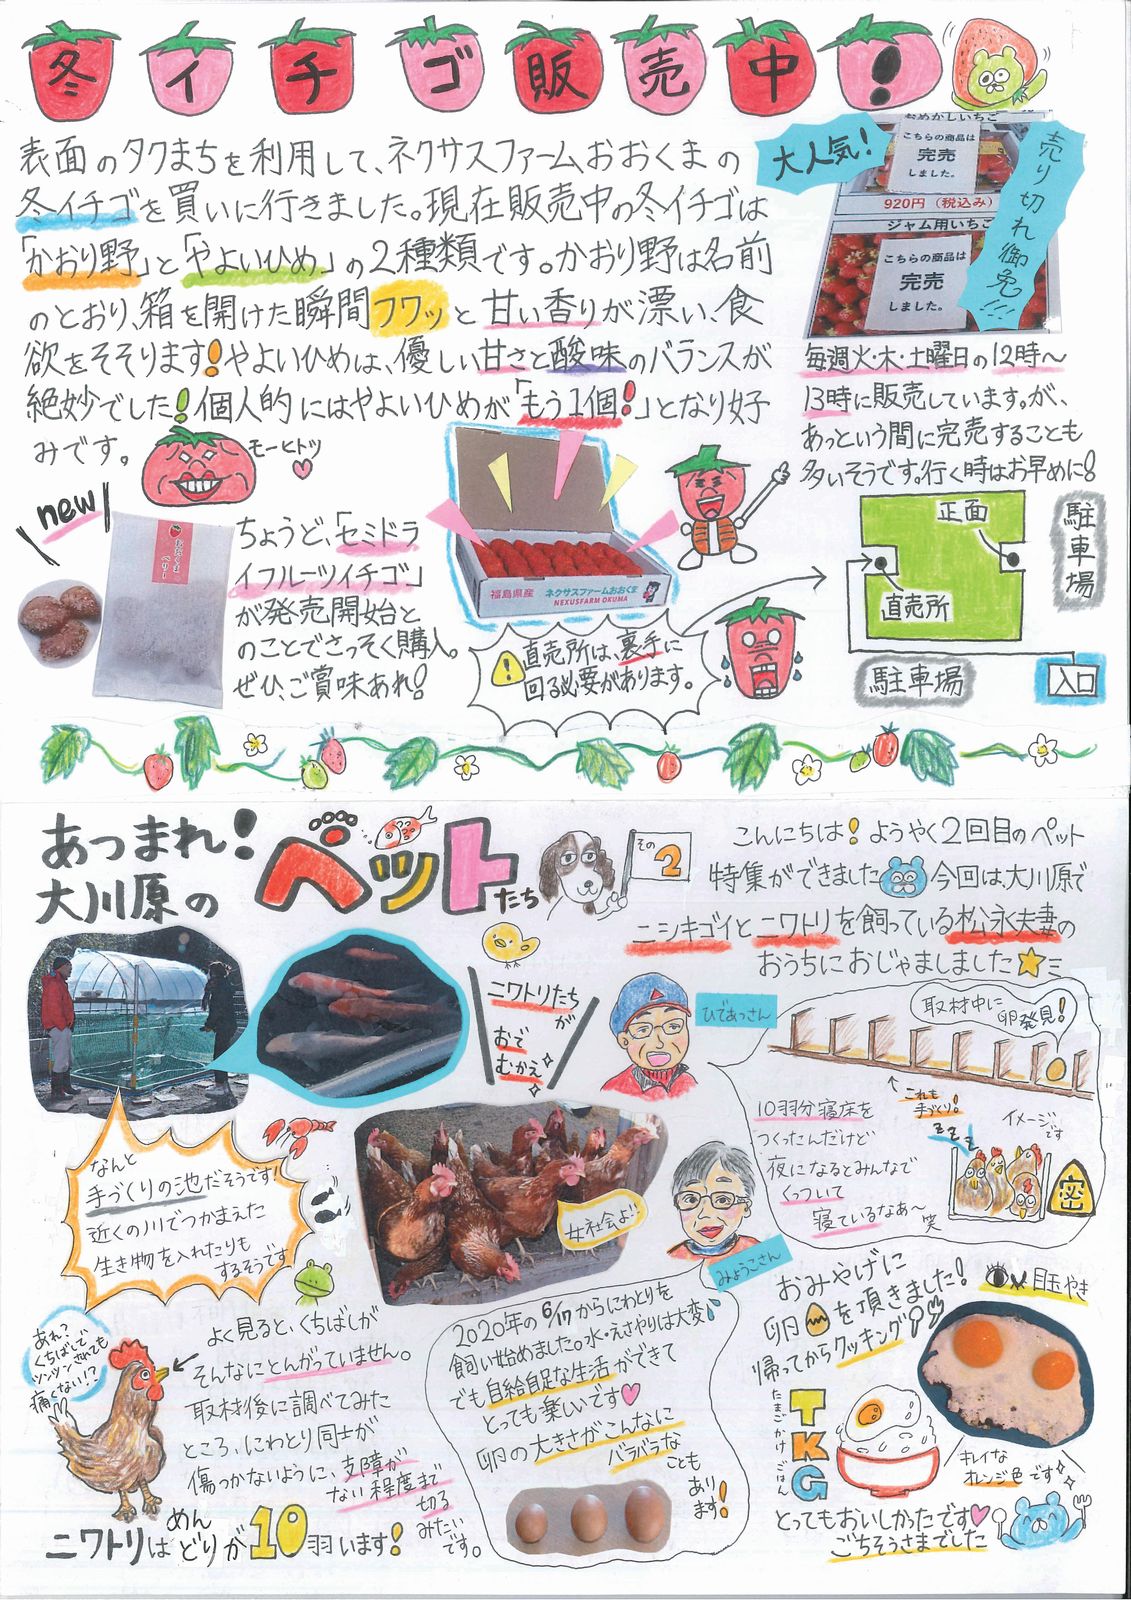 冬イチゴ販売中!
表面のタクまちを利用して、ネクサスファームおおくまの
冬イチゴを買いに行きました。現在販売中の冬イチゴは
「かおり野」と「やよいひめ」の2種類です。かおり野は名前
のとおり、箱を開けた瞬間フワッと甘い香りが漂い、食
欲をそそります!やよいひめは、優しい甘さと酸味のバランスが
絶妙でした!個人的にはやよいひめが「もう1個!」となり好
みです。
モーヒトツ
大人気!
売り切れ御免!!!
おめかしいちご
こちらの商品は
完売
しました。
920円(税込み)
ジャム用いちご
こちらの商品は
完売
しました。
毎週火・木・土曜日の12時〜
13時に販売しています。が、
あっという間に完売することも
多いそうです。行く時はお早めに!
new
おおくまベリー
ちょうど、「セミドラ
イフルーツイチゴ」
が発売開始と
のことでさっそく購入。
ぜひ、ご賞味あれ!
福島県産 ネクサスファームおおくま
NEXUSFARM OKUMA
直売所は、裏手に
回る必要があります。
正面
直売所
駐車場
駐車場
入口
あつまれ!
大川原のペットたち
その2
こんにちは!ようやく2回目のペット
特集ができました 今回は、大川原で
ニシキゴイとニワトリを飼っている松永夫妻の
おうちにおじゃましました
ニワトリたちが
おでむかえ
ひであっさん
取材中に
卵発見!
これも
手づくり!
10羽分寝床を
つくったんだけど
夜になるとみんなで
くっついて
寝ているなあ〜
笑
イメージです
zzz
密
なんと
手づくりの池だそうです!
近くの川でつかまえた
生き物を入れたりも
するそうです
女社会よ!
みょうこさん
2020年の6/17からにわとりを
飼い始めました。水・えさやりは大変
でも自給自足な生活ができて
とっても楽しいです
卵の大きさがこんなに
バラバラな
ことも
あります!
あれ?
くちばしで
ツンツンされても
痛くない!?
よく見ると、くちばしが
そんなにとんがっていません。
取材後に調べてみた
ところ、にわとり同士が
傷つかないように、支障が
ない程度まで
切る
みたい
です。
ニワトリはめんどりが10羽います!
おみやげに
卵を頂きました!
帰ってからクッキング
目玉やき
TKG
たまごかけごはん
キレイな
オレンジ色です
とってもおいしかったです
ごちそうさまでした